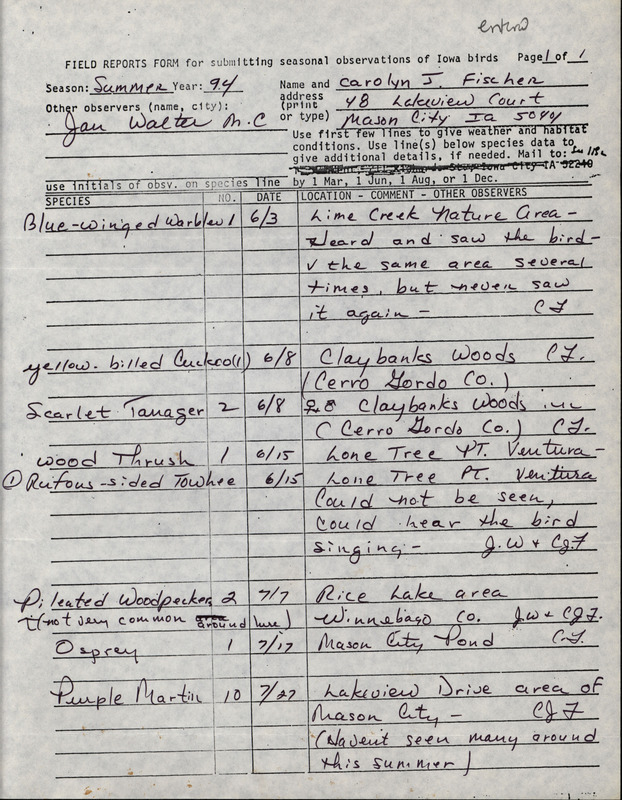 entered
FIELD REPORTS FORM for submitting seasonal observations of Iowa birds Page 1 of 1
Season: Summer Year: 94 Name and Carolyn J. Fischer
address 48 Lakeview Court
Other observers (name, city): (print
or type) Mason City Ia 50401
Jan Walter M.C
Use first few lines to give weather and habitat
conditions. Use line(s) below species data to
give additional details, if needed. Mail to:
Iowa City IA 52240
use initials of obsv. on species line by 1 Mar, 1 Jun, 1 Aug, or 1 Dec.
SPECIES NO. DATE LOCATION - COMMENT - OTHER OBSERVERS
Blue-winged Warbler 1 6/3 Lime Creek Nature Area -
Heard and saw the bird -
✓ the same area several
times, but never saw
it again - CF
yellow-billed Cuckoo (1) 6/8 Claybanks Woods CF.
(Cerro Gordo Co.)
Scarlet Tanager 2 6/8 ♀♂ Claybanks Woods
(Cerro Gordo Co.) CF.
Wood Thrush 1 6/15 Lone Tree PT. Ventura -
① Rufous-sided Towhee 6/15 Lone Tree PT. Ventura
Could not be seen,
could hear the bird
singing - J.W & CJF
Pileated Woodpecker 2 7/7 Rice Lake area
(not very common around here) Winnebago Co. J.W & CJF.
Osprey 1 7/17 Mason City Pond CF.
Purple Martin 10 7/27 Lakeview Drive area of
Mason City - CJF
(Haven't seen many around
this summer)